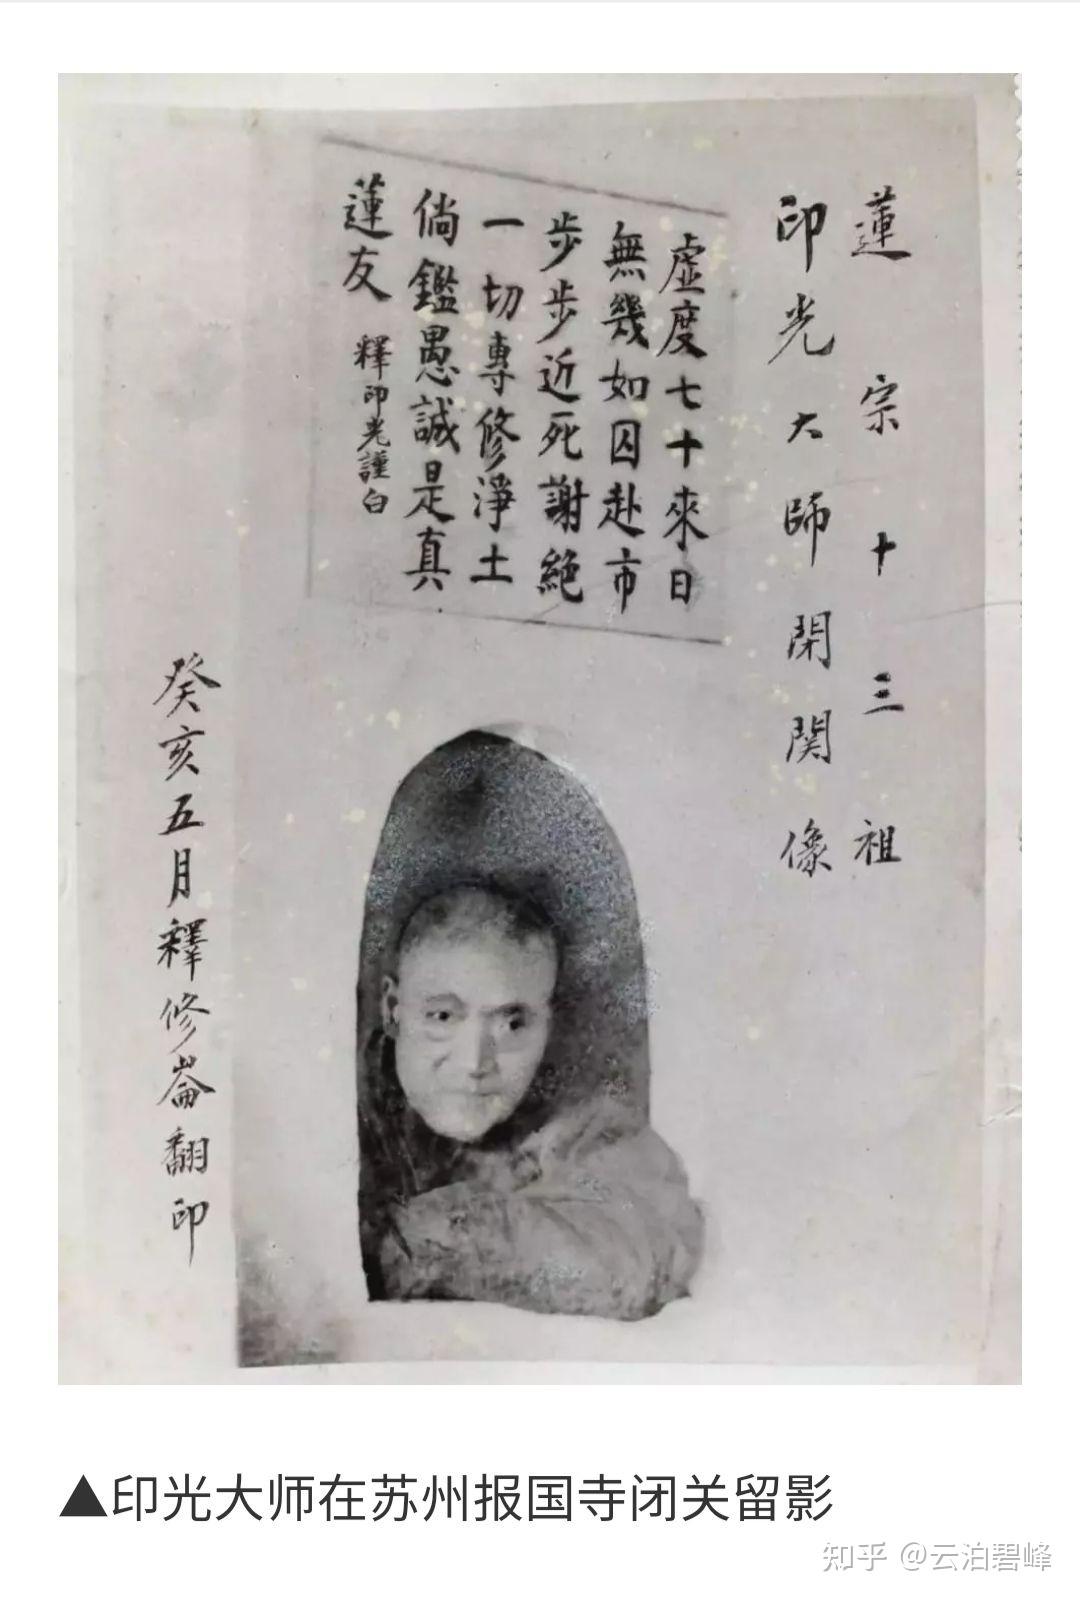 蓮宗十三祖
印光大師閉關像
虛度七十來日
無幾如囚赴市
步步近死謝絕
一切專修淨土
倘鑑愚誠是真
蓮友 釋印光謹白
癸亥五月釋修崙翻印
▲印光大师在苏州报国寺闭关留影
知乎 @云泊碧峰